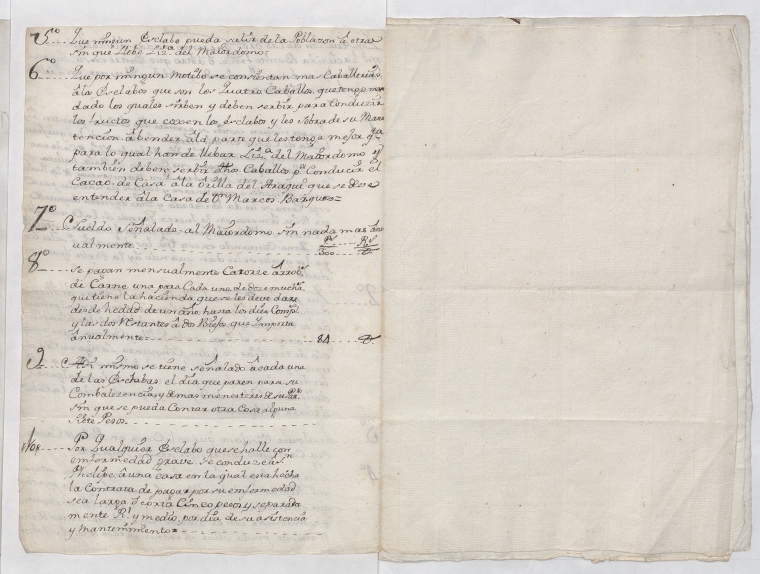 5º... Que ningun Esclabo pueda salir de la Poblazon â otra
sin que llebe Liz.ª del Maiordomo=
6º... Que por ningun motibo se consientan mas Caballerias
â los Esclabos que son los quatro Caballos que tengo man
dado los quales sirben y deben serbir para Conducir
los fructos que coxen los esclabos y les sobra de su Man
tencion â bender â la parte que les tenga mejor q.ta
para lo qual han de llebar Liz.ª del Maiordomo y
tambien deben serbir dhos Caballos p.ª Conducir el
Cacao de Casa â la orilla del Aragui que se
entender â la Casa de Dⁿ Marcos
7º... Sueldo Señalado al Maiordomo sin nada mas an
ualmente... 300
8º... se pagan mensualmente Catorze arrob.s
de Carne una para Cada uno de doze mucha
qui tiene la hacienda que se les deve dar
desde hedad de un año hasta los diez Compl.
y las dos restantes â dos Biejos que Importa
ânualmente= 84
9... Asi mismo se tiene señalado â cada una
de las Esclabas el dia que paren para su
Combalezencia, y demas menesteres de su
sin que se pueda Contar otra Cosa alguna
siete Pesos
10... Por qualquier Esclabo que se halle con
enfermedad grave se conduze â Sⁿ
Phelipe â una casa en la qual esta hecha
la Contrata de pagar por su enfermedad
sea larga ô corta Cinco pesos y separada
mente Rl y medio por dia de su asistencia
y mantenimiento=